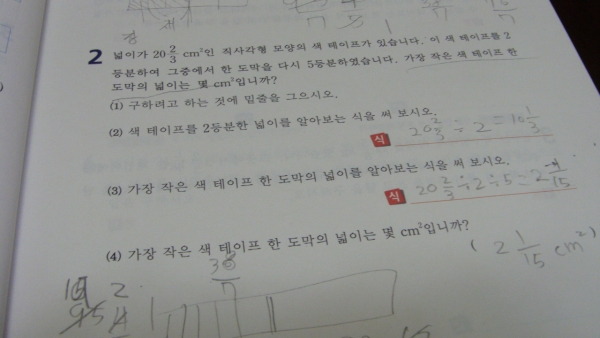 2 넓이가 20 2/3 cm²인 직사각형 모양의 색 테이프가 있습니다. 이 색 테이프를 2
등분하여 그중에서 한 도막을 다시 5등분하였습니다. 가장 작은 색 테이프 한
도막의 넓이는 몇 cm²입니까?
(1) 구하려고 하는 것에 밑줄을 그으시오.
(2) 색 테이프를 2등분한 넓이를 알아보는 식을 써 보시오.
식 20 2/3 ÷ 2 = 10 1/3
(3) 가장 작은 색 테이프 한 도막의 넓이를 알아보는 식을 써 보시오.
식 20 2/3 ÷ 2 ÷ 5 = 2 1/15
(4) 가장 작은 색 테이프 한 도막의 넓이는 몇 cm²입니까?
( 2 1/15 cm² )